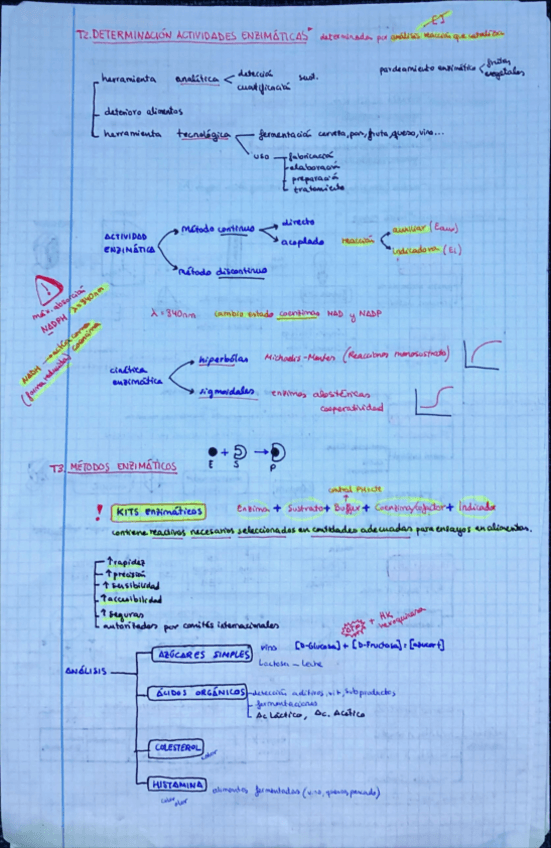 EJ
T2. DETERMINACIÓN ACTIVIDADES ENZIMÁTICAS* determinadas por análisis reacción que catalizan
pardeamiento enzimático frutas
vegetales
herramienta analítica detección sust.
cuantificación
deterioro alimentos
herramienta tecnológica fermentación cerveza, pan, fruta, queso, vino...
uso fabricación
elaboración
preparación
tratamiento
ACTIVIDAD ENZIMÁTICA
método continuo directo
acoplado reacción auxiliar (Eaux)
indicadora (Ei)
método discontinuo
!
máx. absorción
NADPH λ=340nm
λ=340nm cambio estado coenzimas NAD y NADP
NADH
(forma reducida) coenzima
cinética enzimática
hiperbólas Michaelis-Menten (Reacciones monosustrato)
sigmoidales enzimas alostéricas
cooperatividad
E + S → P
T3. MÉTODOS ENZIMÁTICOS
control
! KITS enzimáticos Enzima + Sustrato + Buffer + Coenzima/cofactor + Indicador
contiene reactivos necesarios seleccionados en cantidades adecuadas para ensayos en alimentos.
↑ rapidez
↑ precisión
↑ sensibilidad
↑ accesibilidad
↑ seguras
autorizados por comités internacionales
+ HK
hexoquinasa
ANÁLISIS
AZÚCARES SIMPLES vino [D-Glucosa] + [D-Fructosa] =
Lactosa - Leche
ÁCIDOS ORGÁNICOS detección aditivos, subproductos
fermentaciones
Ac Láctico, Ac. Acético
COLESTEROL
color
HISTAMINA alimentos fermentados (vino, queso, pescado)
color
olor